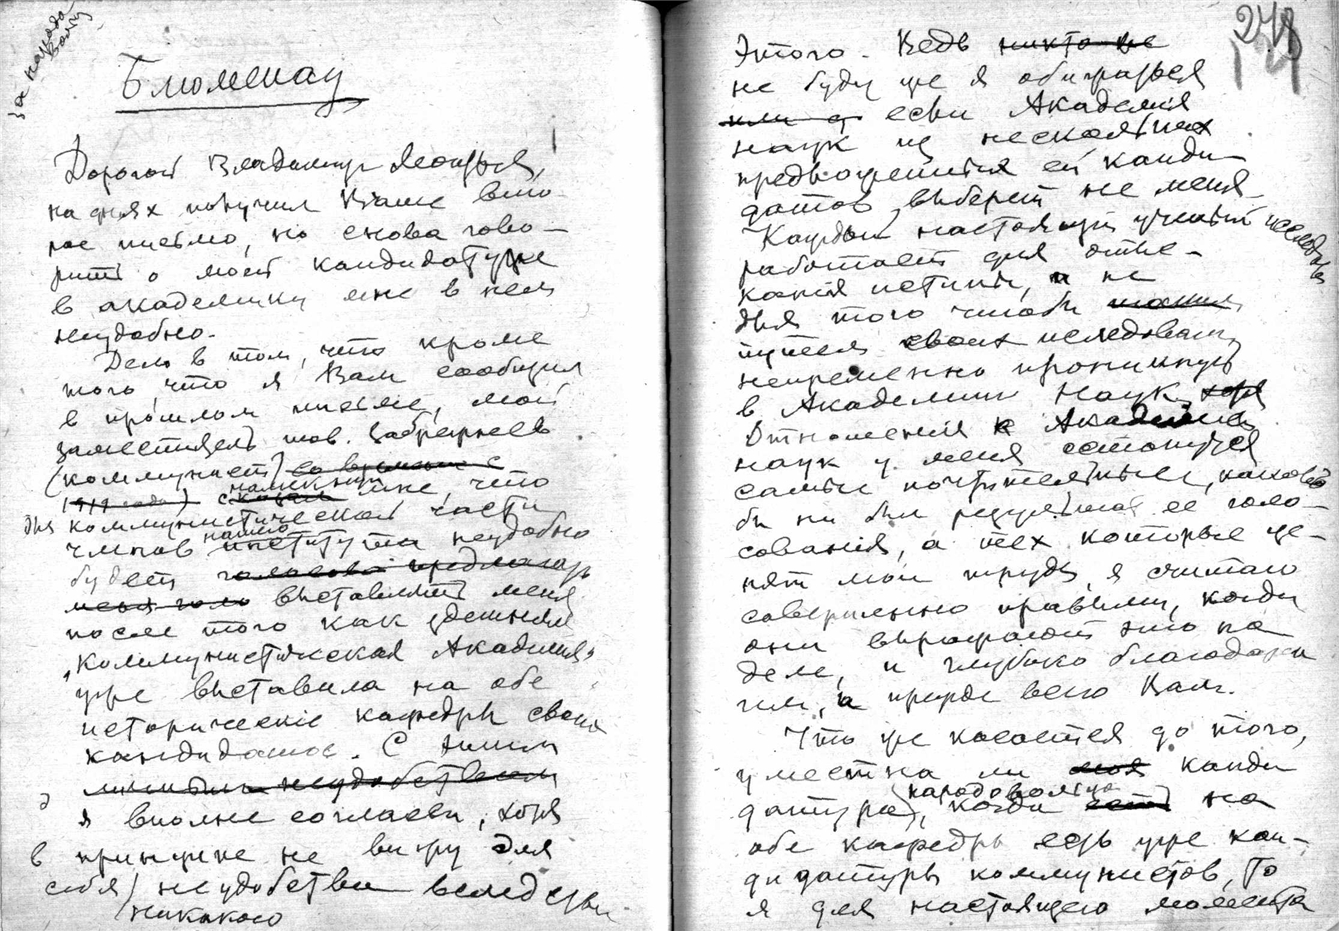 Блюменау
Дорогой Владимир Леонтьев,
на днях получил Ваше вто-
рое письмо, но снова гово-
рить о моей кандидатуре
в академики мне в нем
неудобно.
Дело в том, что кроме
того, что я Вам сообщил
в прошлом письме, мой
заместитель тов.
(коммунист) со времени с
1917 года) сказал намекнул мне, что
для коммунистической части
членов нашего института неудобно
будет предлагать
меня выставлять меня
после того как здешняя
„Коммунистическая Академия“
уже выставила на обе
исторические кафедры своих
кандидатов. С этим
мнимым неудобством
я вполне согласен, хотя
в принципе не вижу для
себя никакого неудобства вследствии
278
Этого. Ведь никто не
не буду же я обижаться
или если Академия
наук из нескольких
предложенных ей канди
датов выберет не меня.
Каждый настоящий ученый исследователь
работает для отыс-
кания истины, а не
для того чтобы
путем своих исследований
непременно проникнуть
в Академию Наук.
Отношения к Академии
наук у меня останутся
самые почтительные, каково
бы ни был результат ее голо-
сования, а тех которые це-
нят мои труды, я считаю
совершенно правыми, когда
они выражают это на
деле, и глубоко благодарен
им, а прежде всего Вам.
Что же касается до того,
уместна ли моя канди
датура народовольца, когда есть на
обе кафедры есть уже кан-
дидатуры коммунистов, то
я для настоящего момента